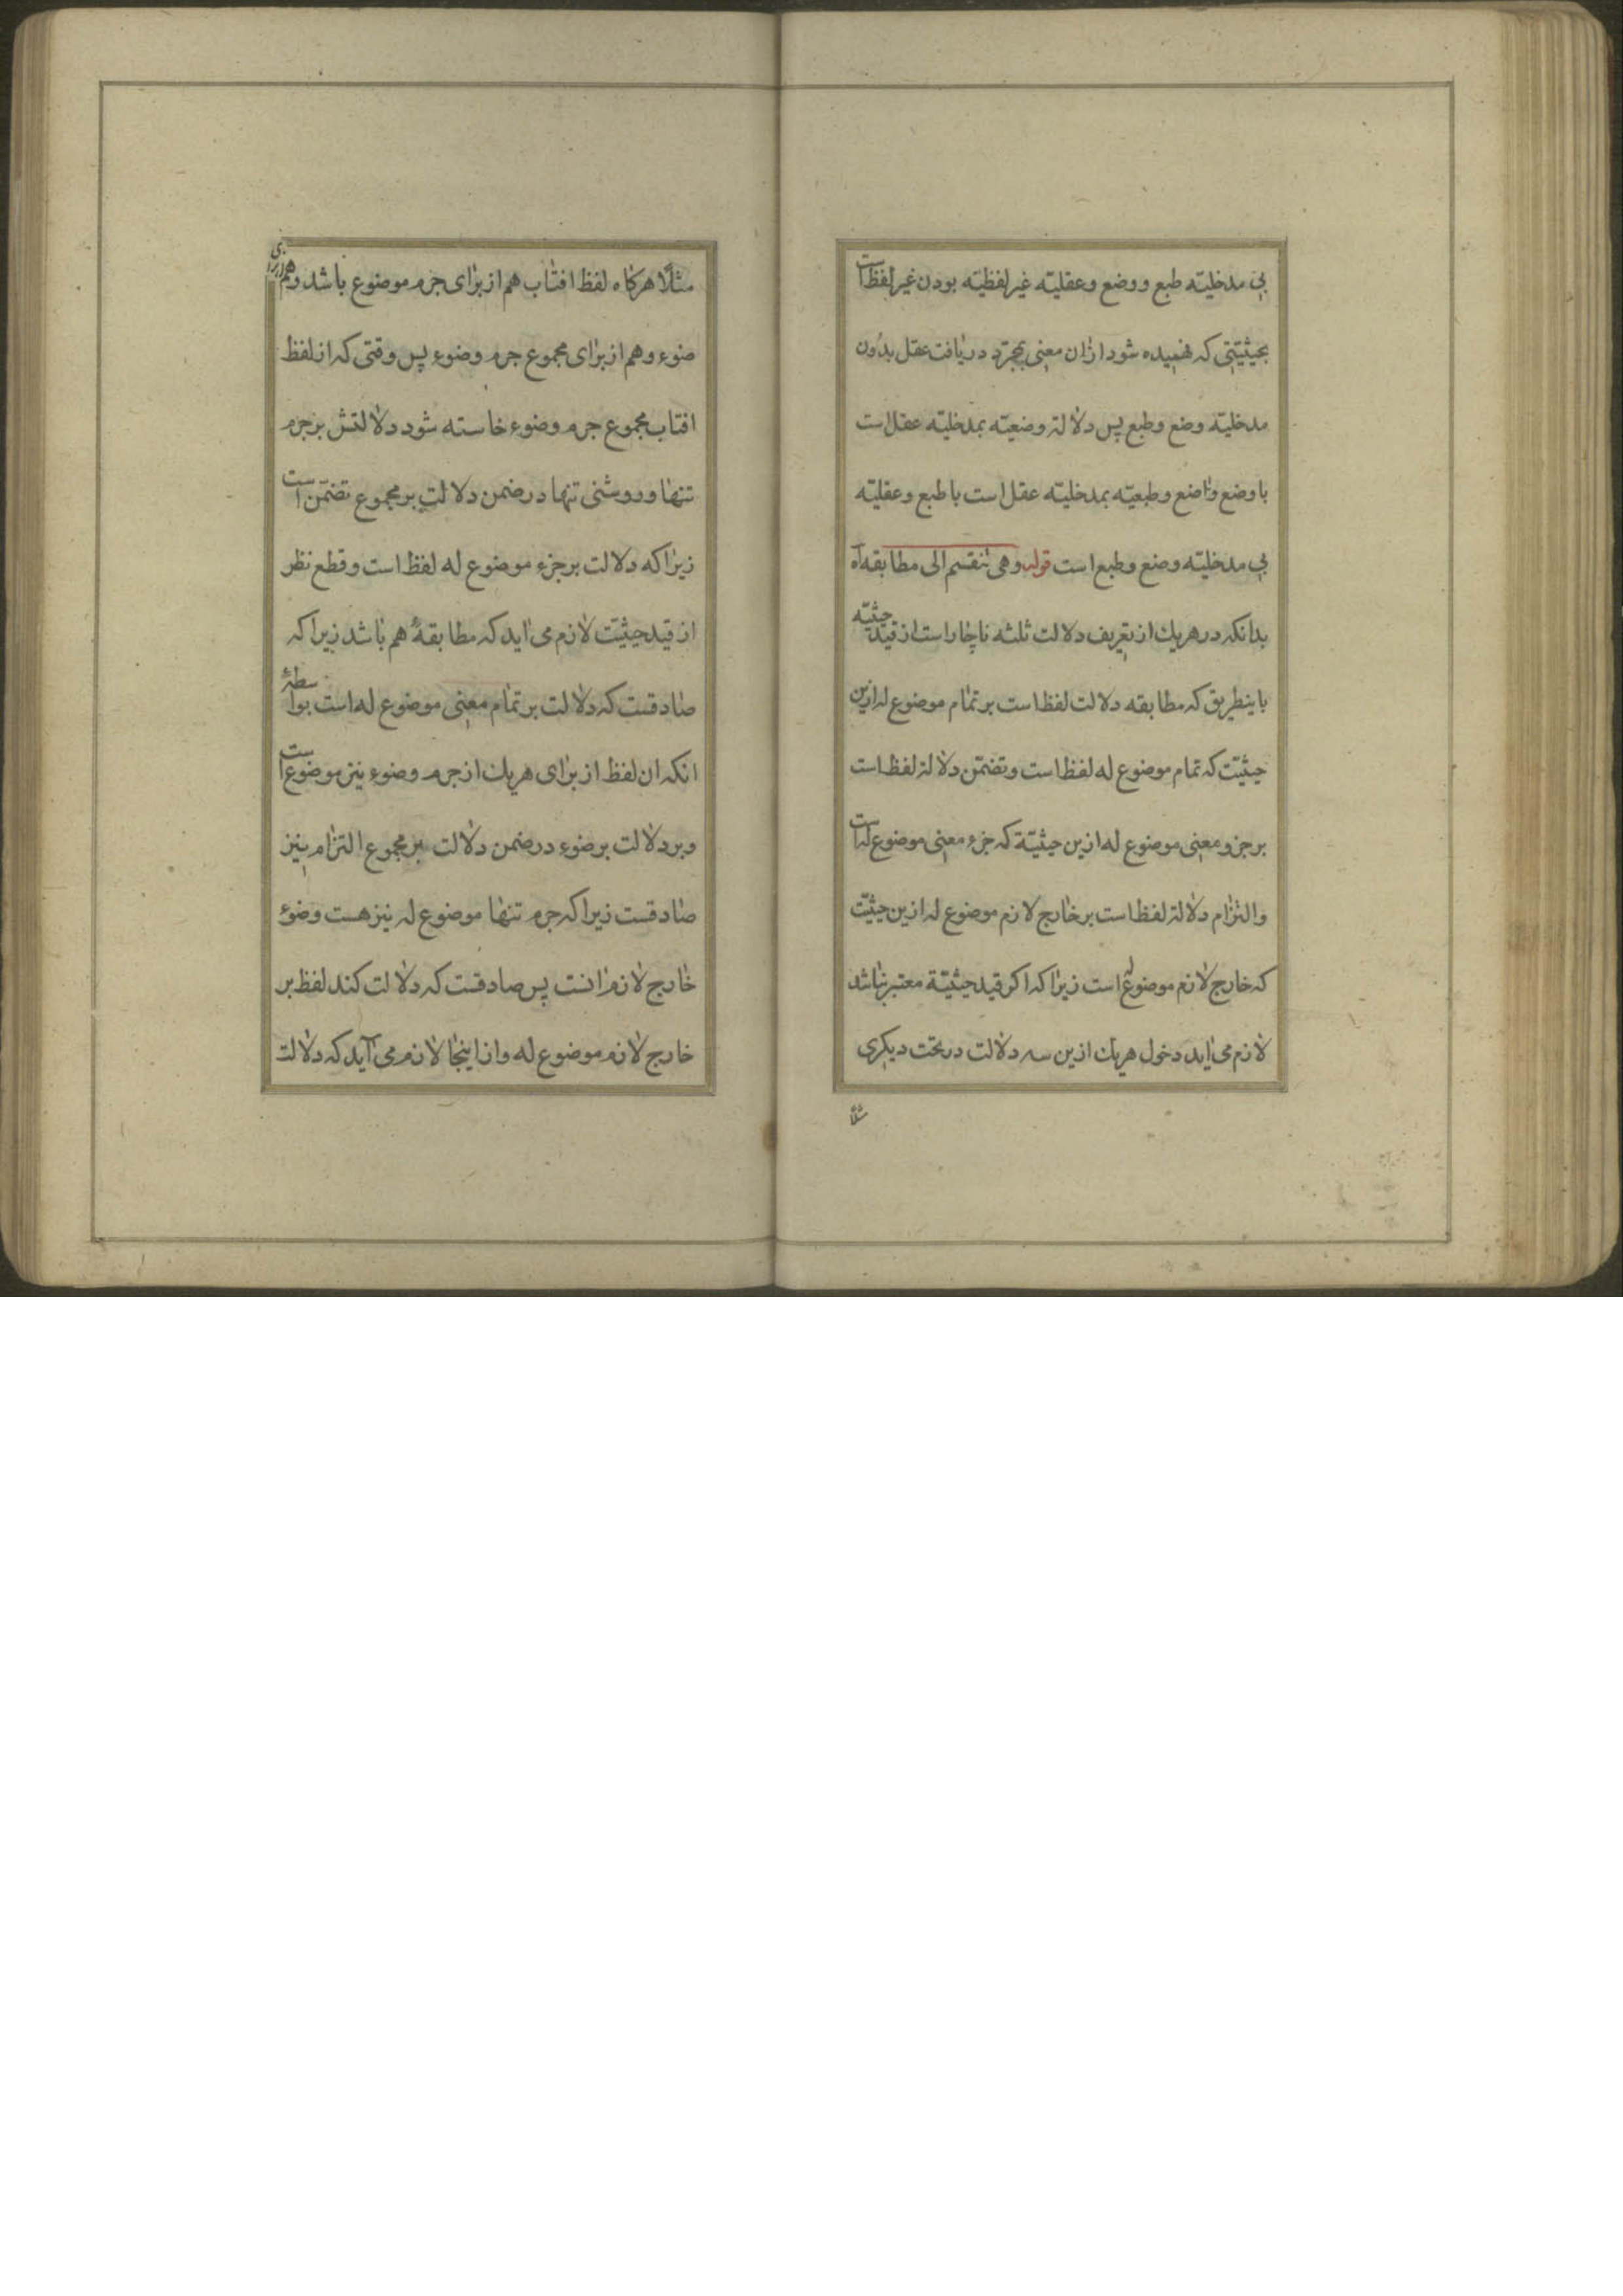 بی مدخلیته طبع ووضع وعقلیته غیر لفظیته بودن غیر لفظ است
بحیثیتی که فهمیده شود ازان معنی بمجرد دریافت عقل بدون
مدخلیته وضع وطبع پس دلالة وضعیته بمدخلیته عقل است
با وضع واضع وطبعیته بمدخلیته عقل است با طبع وعقلیته
بی مدخلیته وضع وطبع است قوله وهی تنقسم الی مطابقه آه
بدانکه در هریك از تعریف دلالت ثلثه ناچار است از قید حیثیته
باینطریق که مطابقه دلالت لفظ است بر تمام موضوع له ازین
حیثیت که تمام موضوع له لفظ است وتضمن دلالة لفظ است
بر جزو معنی موضوع له ازین حیثیتة که جزء معنی موضوع له است
والتزام دلالة لفظ است بر خارج لازم موضوع له ازین حیثیت
که خارج لازم موضوع له است زیرا که اکر قید حیثیتة معتبر نباشد
لازم می اید دخول هریك ازین سه دلالت در تحت دیکری
مثلا
مثلًا هرکاه لفظ افتاب هم از برای جرم موضوع باشد وهم از برای
ضوء وهم از برای مجموع جرم وضوء پس وقتی که از لفظ
افتاب مجموع جرم وضوء خاسته شود دلالتش بر جرم
تنها وروشنی تنها در ضمن دلالت بر مجموع تضمّن است
زیرا که دلالت بر جزء موضوع له لفظ است وقطع نظر
از قید حیثیّت لازم می اید که مطابقهٔ هم باشد زیرا که
صادقست که دلالت بر تمام معنی موضوع له است بواسطهٔ
انکه ان لفظ از برای هریك از جرم وضوء نیز موضوع است
وبر دلالت بر ضوء در ضمن دلالت بر مجموع التزام نیز
صادقست زیرا که جرم تنها موضوع له نیز هست وضوء
خارج لازم انست پس صادقست که دلالت کند لفظ بر
خارج لازم موضوع له واز اینجا لازم می آید که دلالت